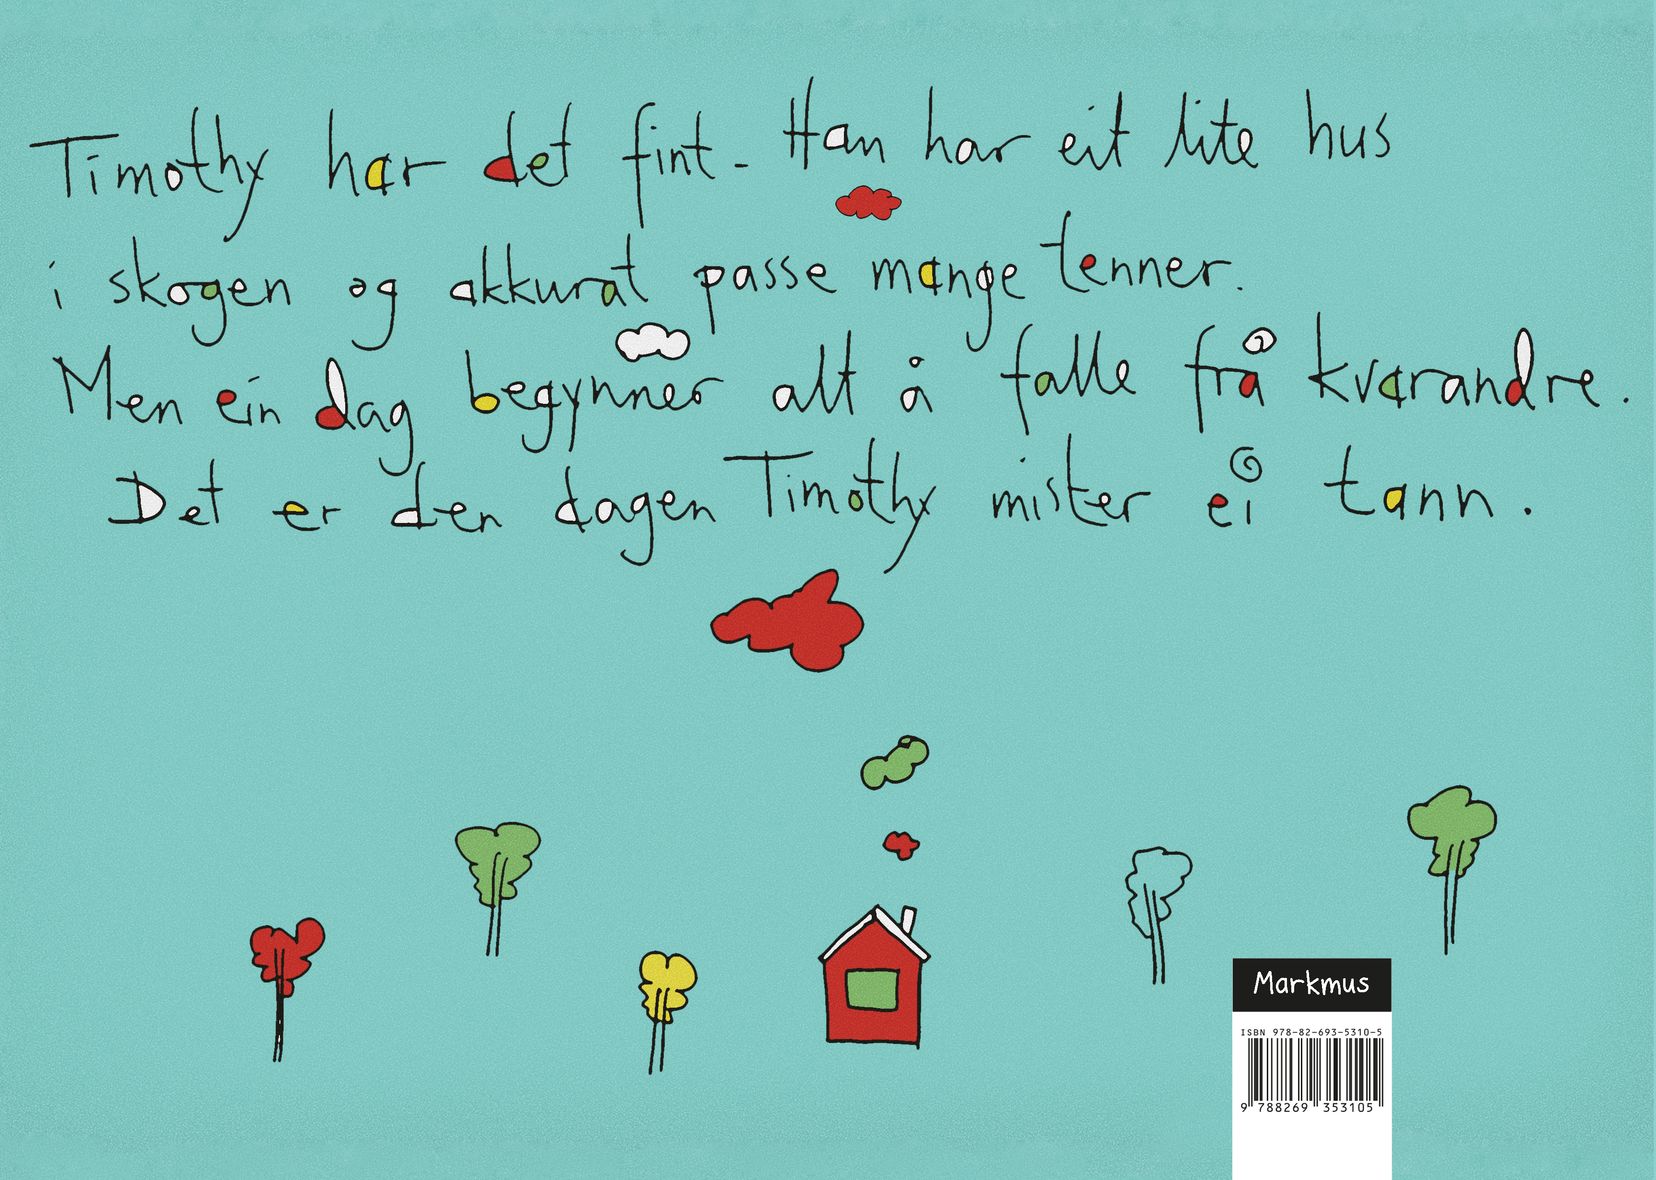 Timothy har det fint. Han har eit lite hus
i skogen og akkurat passe mange tenner.
Men ein dag begynner alt å falle frå kvarandre.
Det er den dagen Timothy mister ei tann.
Markmus
ISBN 978-82-693-5310-5
9 788269 353105